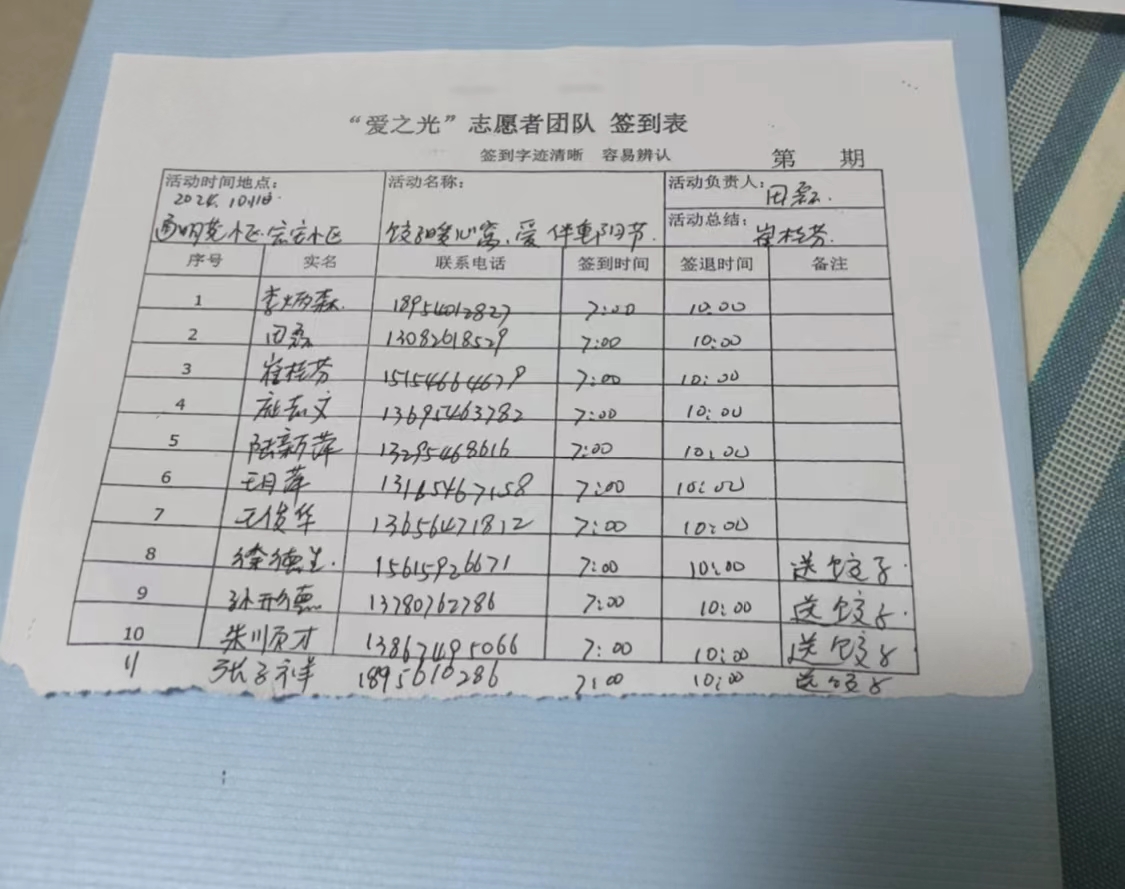 “爱之光”志愿者团队 签到表
签到字迹清晰 容易辨认 第 期
活动时间地点: 活动名称: 活动负责人: 田磊.
2024.10.11日.
小区.宏安小区 饺子暖心窝、爱伴重阳节. 活动总结: 崔桂芬.
序号 实名 联系电话 签到时间 签退时间 备注
1 李炳森. 18954012827 7:00 10:00
2 田磊 13082618529 7:00 10:00
3 崔桂芬 15154664679 7:00 10:00
4 文 13695463782 7:00 10:00
5 陆新萍 13295468616 7:00 10:00
6 王月萍 13165467158 7:00 10:00
7 王俊华 13656471812 7:00 10:00
8 徐德生. 15615926671 7:00 10:00 送饺子.
9 孙德 13780762786 7:00 10:00 送饺子.
10 朱川 13867495066 7:00 10:00 送饺子
11 张子祥 1895610286 7:00 10:00 送饺子